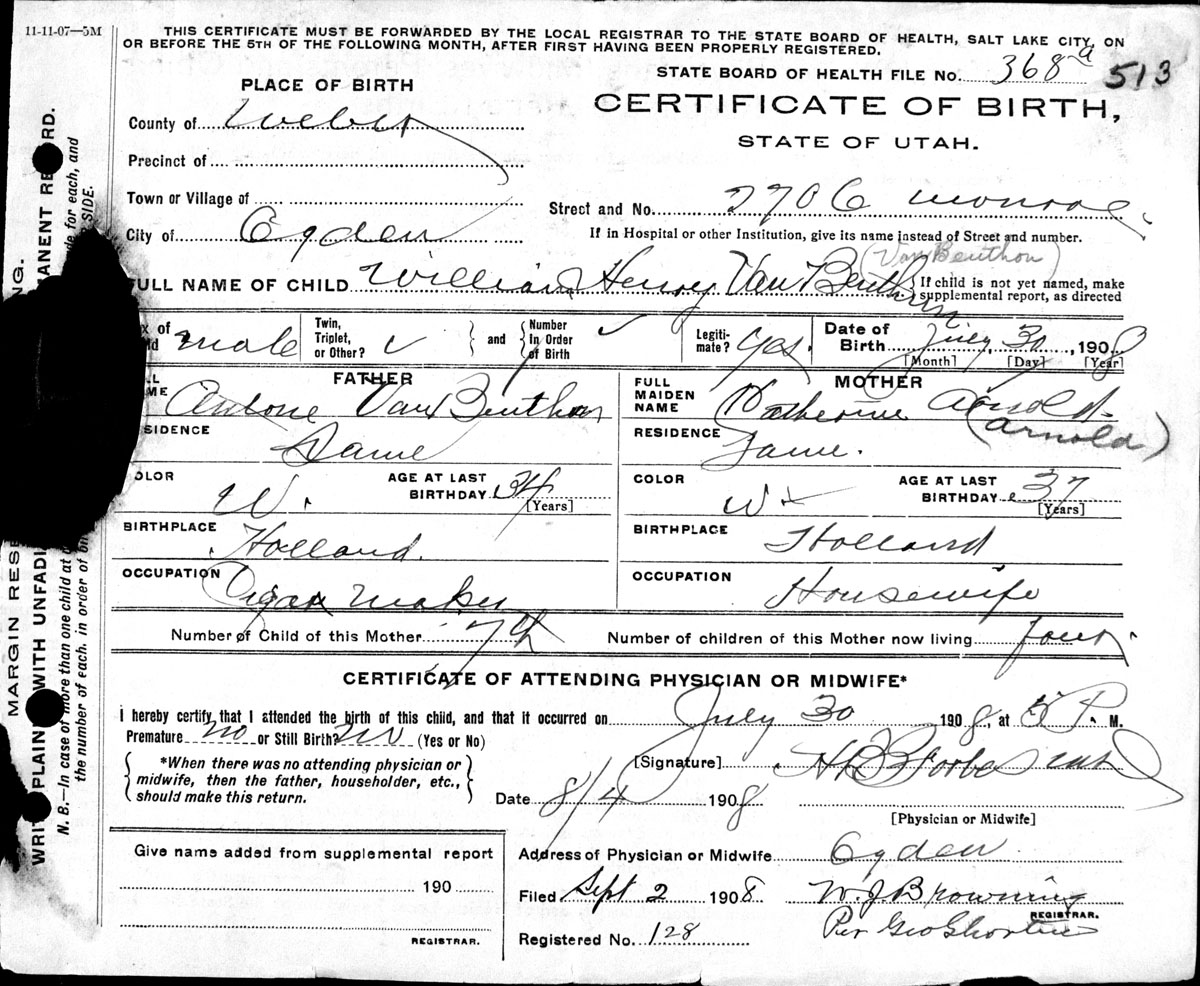 11-11-07—5M
THIS CERTIFICATE MUST BE FORWARDED BY THE LOCAL REGISTRAR TO THE STATE BOARD OF HEALTH, SALT LAKE CITY, ON
OR BEFORE THE 5TH OF THE FOLLOWING MONTH, AFTER FIRST HAVING BEEN PROPERLY REGISTERED.
STATE BOARD OF HEALTH FILE No. 368 a 513
PLACE OF BIRTH
CERTIFICATE OF BIRTH,
STATE OF UTAH.
County of Weber
Precinct of
Town or Village of
Street and No. 2706 Monroe
City of Ogden
If in Hospital or other Institution, give its name instead of Street and number.
(Van Beuthon)
FULL NAME OF CHILD William Henry Van Beuthon
If child is not yet named, make
supplemental report, as directed
male
Twin,
Triplet,
or Other?
and
Number
In Order
of Birth
Legiti-
mate? yes
Date of
Birth July 30, 1908
[Month] [Day] [Year]
FATHER
Antone Van Beuthon
RESIDENCE Same
COLOR W.
AGE AT LAST
BIRTHDAY 34
[Years]
BIRTHPLACE
Holland.
OCCUPATION
Cigar Maker
MOTHER
FULL
MAIDEN
NAME Katherine Arnold
(Arnold)
RESIDENCE Same.
COLOR W
AGE AT LAST
BIRTHDAY 37
[Years]
BIRTHPLACE
Holland
OCCUPATION
Housewife
Number of Child of this Mother 7th
Number of children of this Mother now living four
CERTIFICATE OF ATTENDING PHYSICIAN OR MIDWIFE*
I hereby certify that I attended the birth of this child, and that it occurred on July 30 1908, at 5 P. M.
Premature no or Still Birth? no (Yes or No)
*When there was no attending physician or
midwife, then the father, householder, etc.,
should make this return.
[Signature] H B Forbes
Date 8/4 1908
[Physician or Midwife]
Give name added from supplemental report
190
REGISTRAR.
Address of Physician or Midwife Ogden
Filed Sept 2 1908 W. J. Browning
REGISTRAR.
Registered No. 128 Per Geo Shorten
MARGIN RESE
WRITE PLAINLY WITH UNFADI
MANENT RECORD.
N. B.—In case of more than one child at
for each, and
the number of each, in order of bi
SIDE.